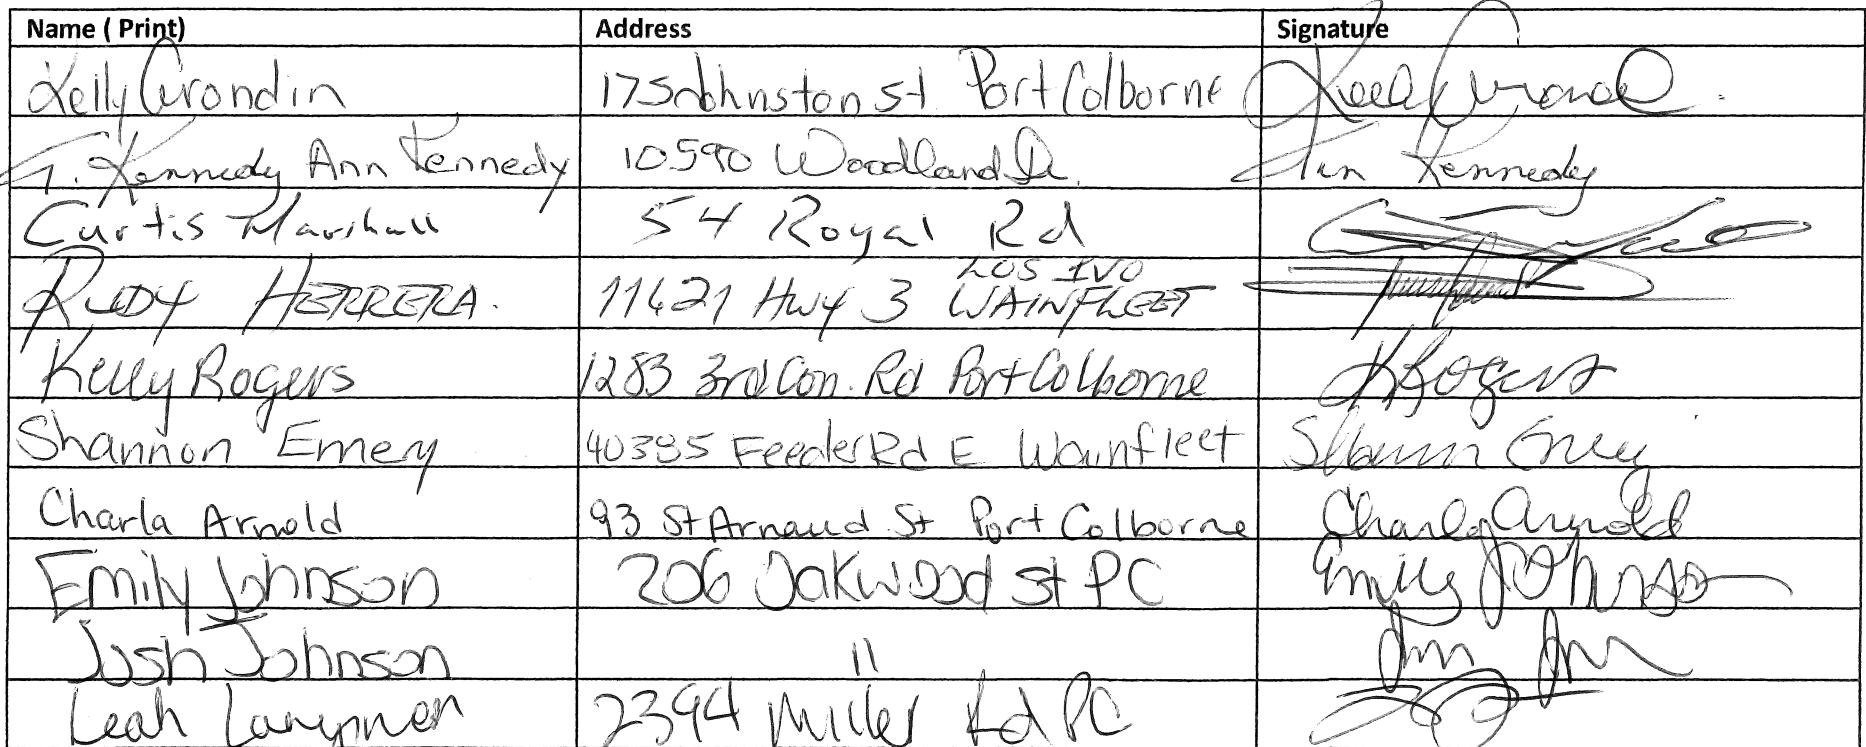 Name ( Print) Address Signature
Kelly Grondin 175 Johnston St Port Colborne
Kennedy Ann Kennedy 10590 Woodland Dr. Ann Kennedy
Curtis Marshall 54 Royal Rd
LOS IVO
RUDY HERRERA. 11621 Hwy 3 WAINFLEET
Kelly Rogers 1283 3rd Con. Rd Port Colborne K Rogers
Shannon Emery 40385 Feeder Rd E Wainfleet Shannon Emery
Charla Arnold 93 St Arnaud St Port Colborne Charla Arnold
Emily Johnson 206 Oakwood St PC Emily Johnson
Josh Johnson "
Leah 2394 Miller Rd PC